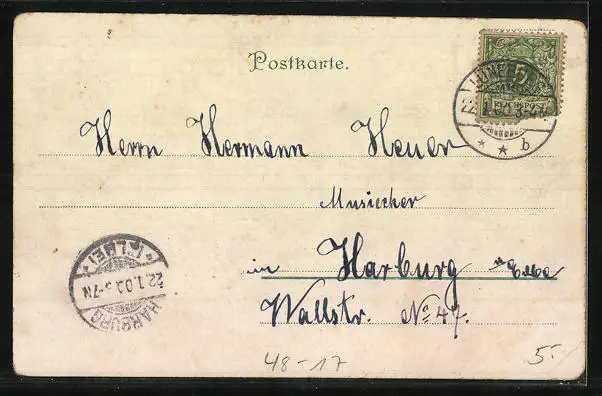 Postkarte.
5
REICHSPOST
22.1.00
* * b
Herrn Hermann Heuer
Musiecker
in Harburg a/Elbe
Wallstr. No 47.
HARBURG
* (ELBE) *
22.1.00 5-7N
48-17
5.-